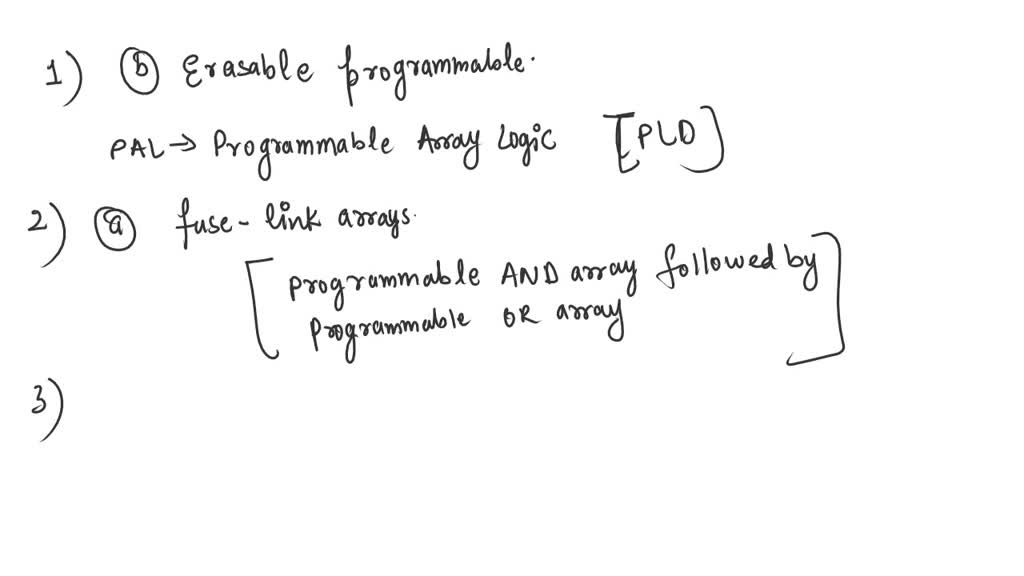 1) (b) Erasable programmable.
PAL → Programmable Array Logic [PLD]
2) (a) fuse-link arrays.
[programmable AND array followed by
Programmable OR array]
3)